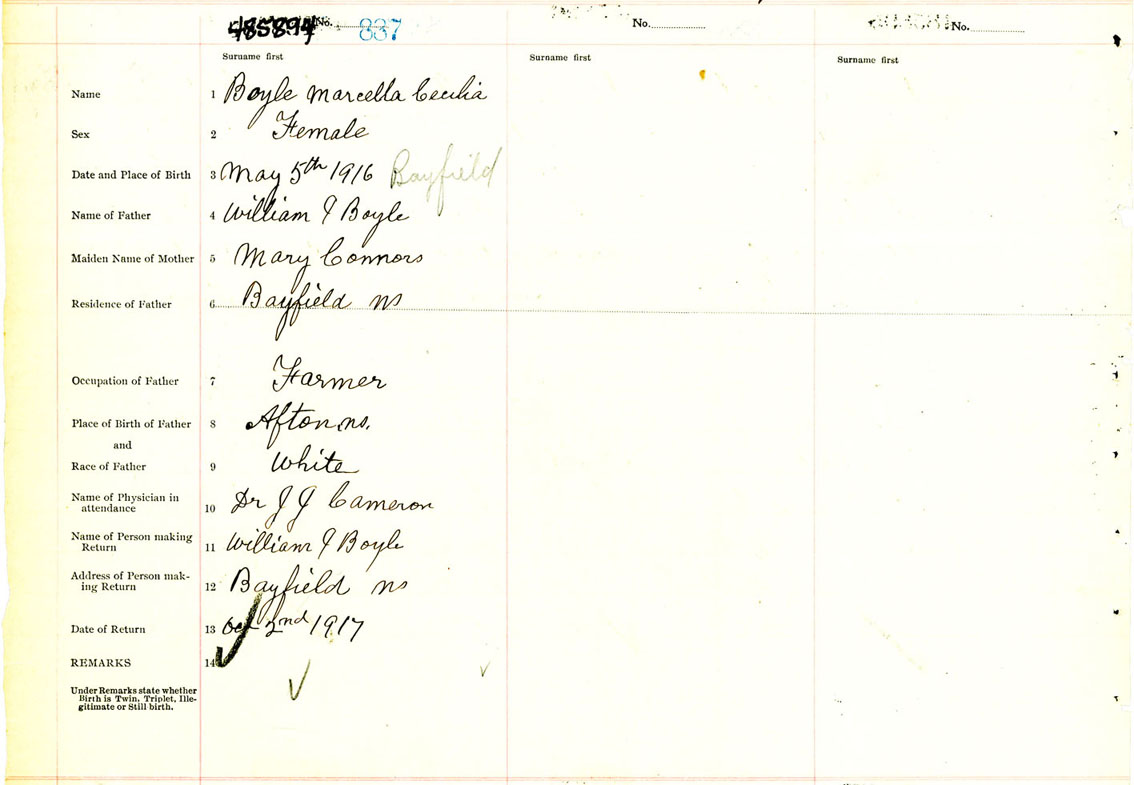 No. 837
No.
No.
Surname first
Surname first
Surname first
Name 1 Boyle Marcella Cecilia
Sex 2 Female
Date and Place of Birth 3 May 5th 1916 Bayfield
Name of Father 4 William J Boyle
Maiden Name of Mother 5 Mary Connors
Residence of Father 6 Bayfield ns
Occupation of Father 7 Farmer
Place of Birth of Father 8 Afton ns.
and
Race of Father 9 White
Name of Physician in
attendance 10 Dr J J Cameron
Name of Person making
Return 11 William J Boyle
Address of Person mak-
ing Return 12 Bayfield ns
Date of Return 13 Oct 2nd 1917
REMARKS 14
Under Remarks state whether
Birth is Twin, Triplet, Ille-
gitimate or Still birth.